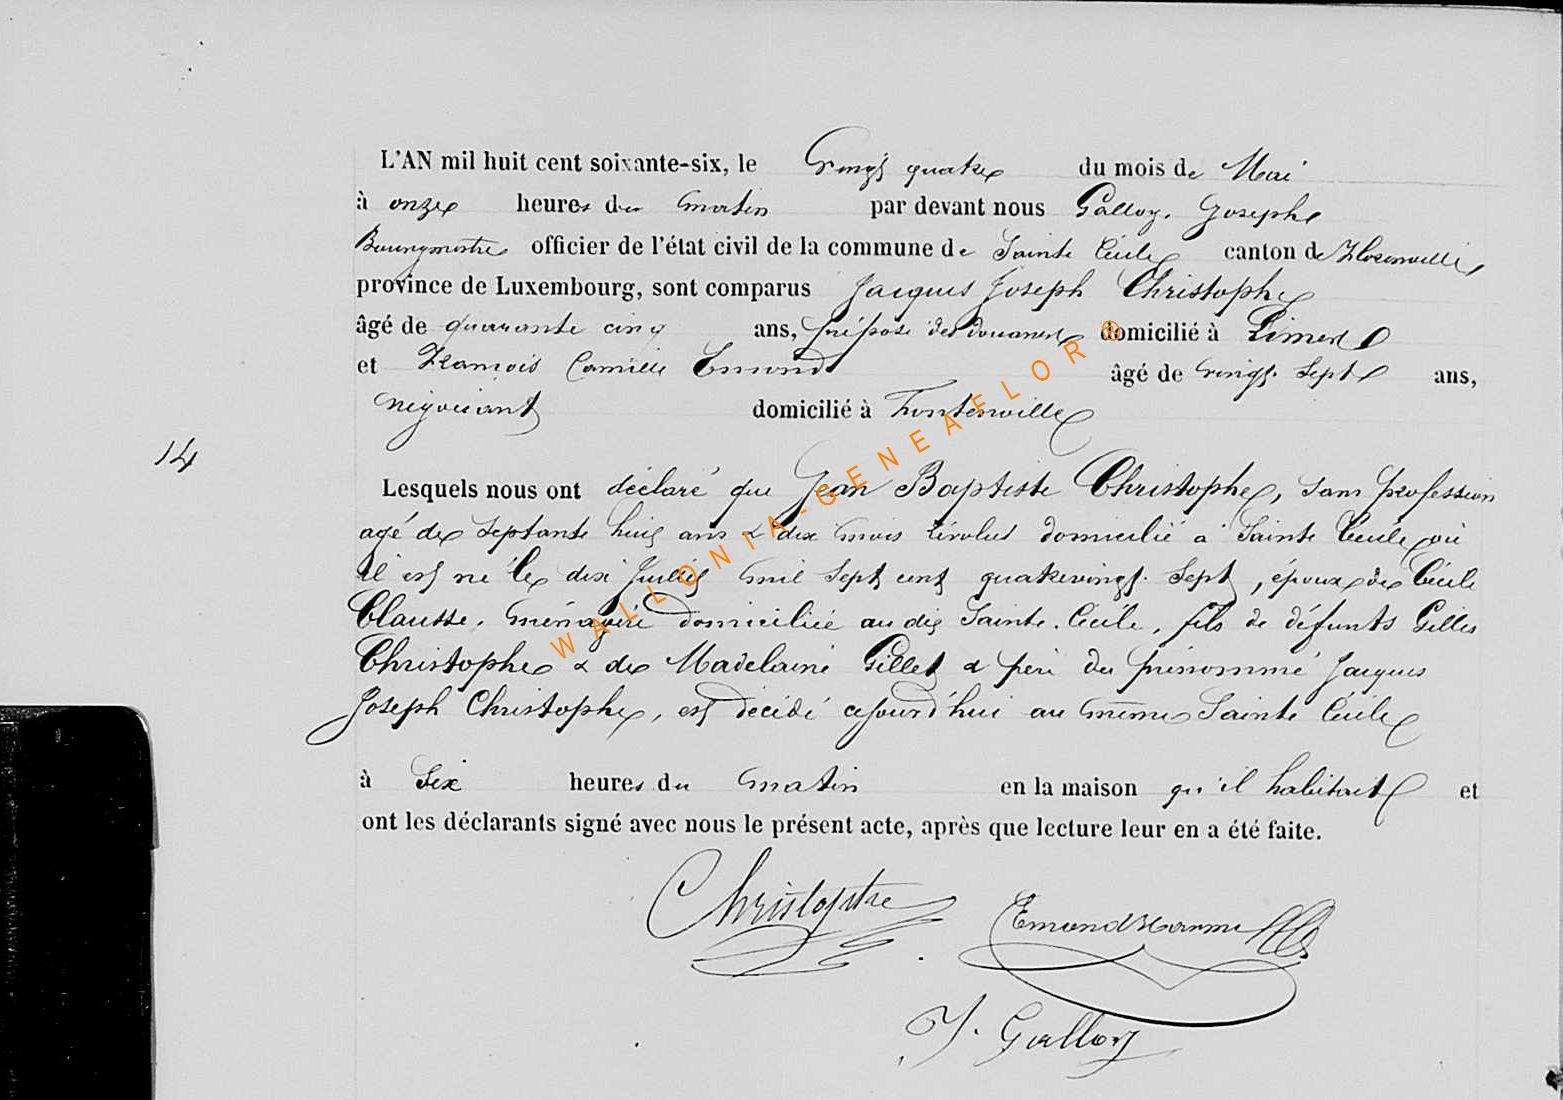 L'AN mil huit cent soixante-six, le Vingt quatre du mois de Mai
à onze heures du matin par devant nous Galloy, Joseph
Bourgmestre officier de l'état civil de la commune de Sainte Cécile canton de Florenville
province de Luxembourg, sont comparus Jacques Joseph Christophe
âgé de quarante cinq ans, préposé des douanes domicilié à Limes
et François Camille Emond âgé de vingt-sept ans,
négociant domicilié à Fontenoille
14
Lesquels nous ont déclaré que Jean Baptiste Christophe, sans profession
agé de septante huit ans & dix mois révolus domicilié à Sainte Cécile où
il est né le dix Juillet mil sept cent quatrevingt-sept, époux de Cécile
Clausse, ménagère domiciliée audit Sainte-Cécile, fils de défunts Gilles
Christophe & de Madelaine Gillet & père du prénommé Jacques
Joseph Christophe, est décédé cejourd'hui au même Sainte Cécile
à six heures du matin en la maison qu'il habitait et
ont les déclarants signé avec nous le présent acte, après que lecture leur en a été faite.
Christophe
Emond
J. Galloy
WALLONIA-GENEAFLOR®